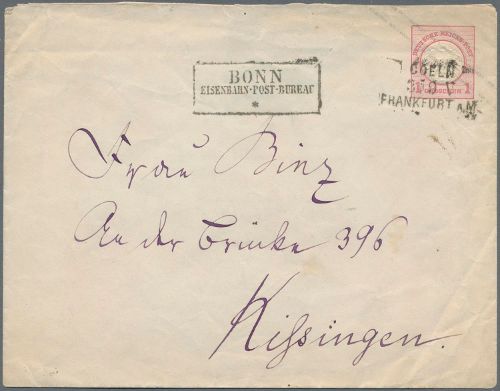 DEUTSCHE REICHS-POST
1 1
BONN
EISENBAHN-POST-BUREAU
*
COELN
FRANKFURT A.M.
Frau Binz
An der Brücke 396
Kissingen.